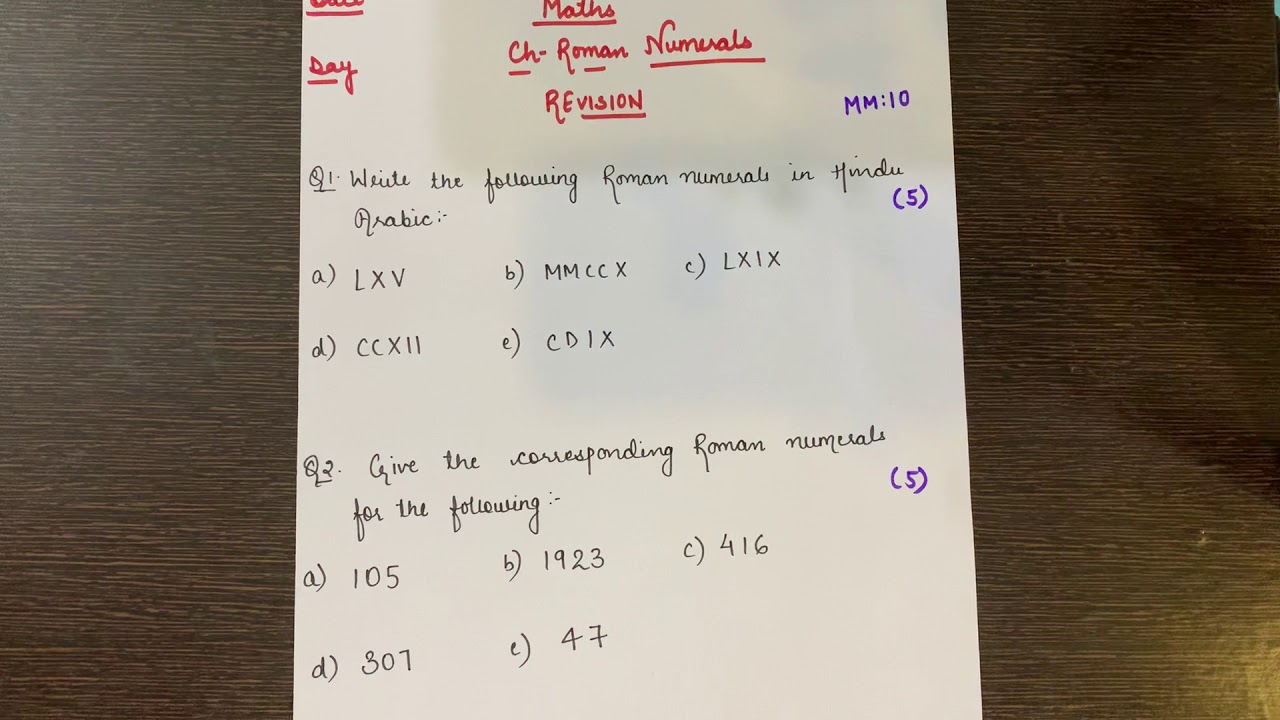 Maths
Ch- Roman Numerals
Day
REVISION
MM:10
Q1. Write the following Roman numerals in Hindu
Arabic:- (5)
a) LXV b) MMCCX c) LXIX
d) CCXII e) CDIX
Q2. Give the corresponding Roman numerals
for the following:- (5)
a) 105 b) 1923 c) 416
d) 307 e) 47